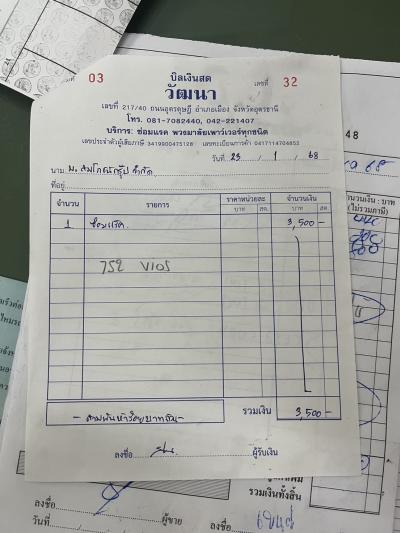 เล่มที่ 03 บิลเงินสด เลขที่ 32
วัฒนา
เลขที่ 217/40 ถนนอุดรดุษฎี อำเภอเมือง จังหวัดอุดรธานี
โทร. 081-7082440, 042-221407
บริการ: ซ่อมแรค พวงมาลัยเพาเวอร์ทุกชนิด
เลขประจำตัวผู้เสียภาษี 3419900475128 เลขทะเบียนการค้า 0417114704853
วันที่ 23 / 1 / 68
นาม
ที่อยู่
จำนวน รายการ ราคาหน่วยละ จำนวนเงิน
บาท สต. บาท สต.
1 ซ่อมแร็ค 3,500 -
752 VIOS
- สามพันห้าร้อยบาทถ้วน - รวมเงิน 3,500 -
ลงชื่อ ผู้รับเงิน
48
68
จำนวนเงิน : บาท
(ไม่รวมภาษี)
รวมเงินทั้งสิ้น
ลงชื่อ
วันที่ ผู้ขาย ลงชื่อ